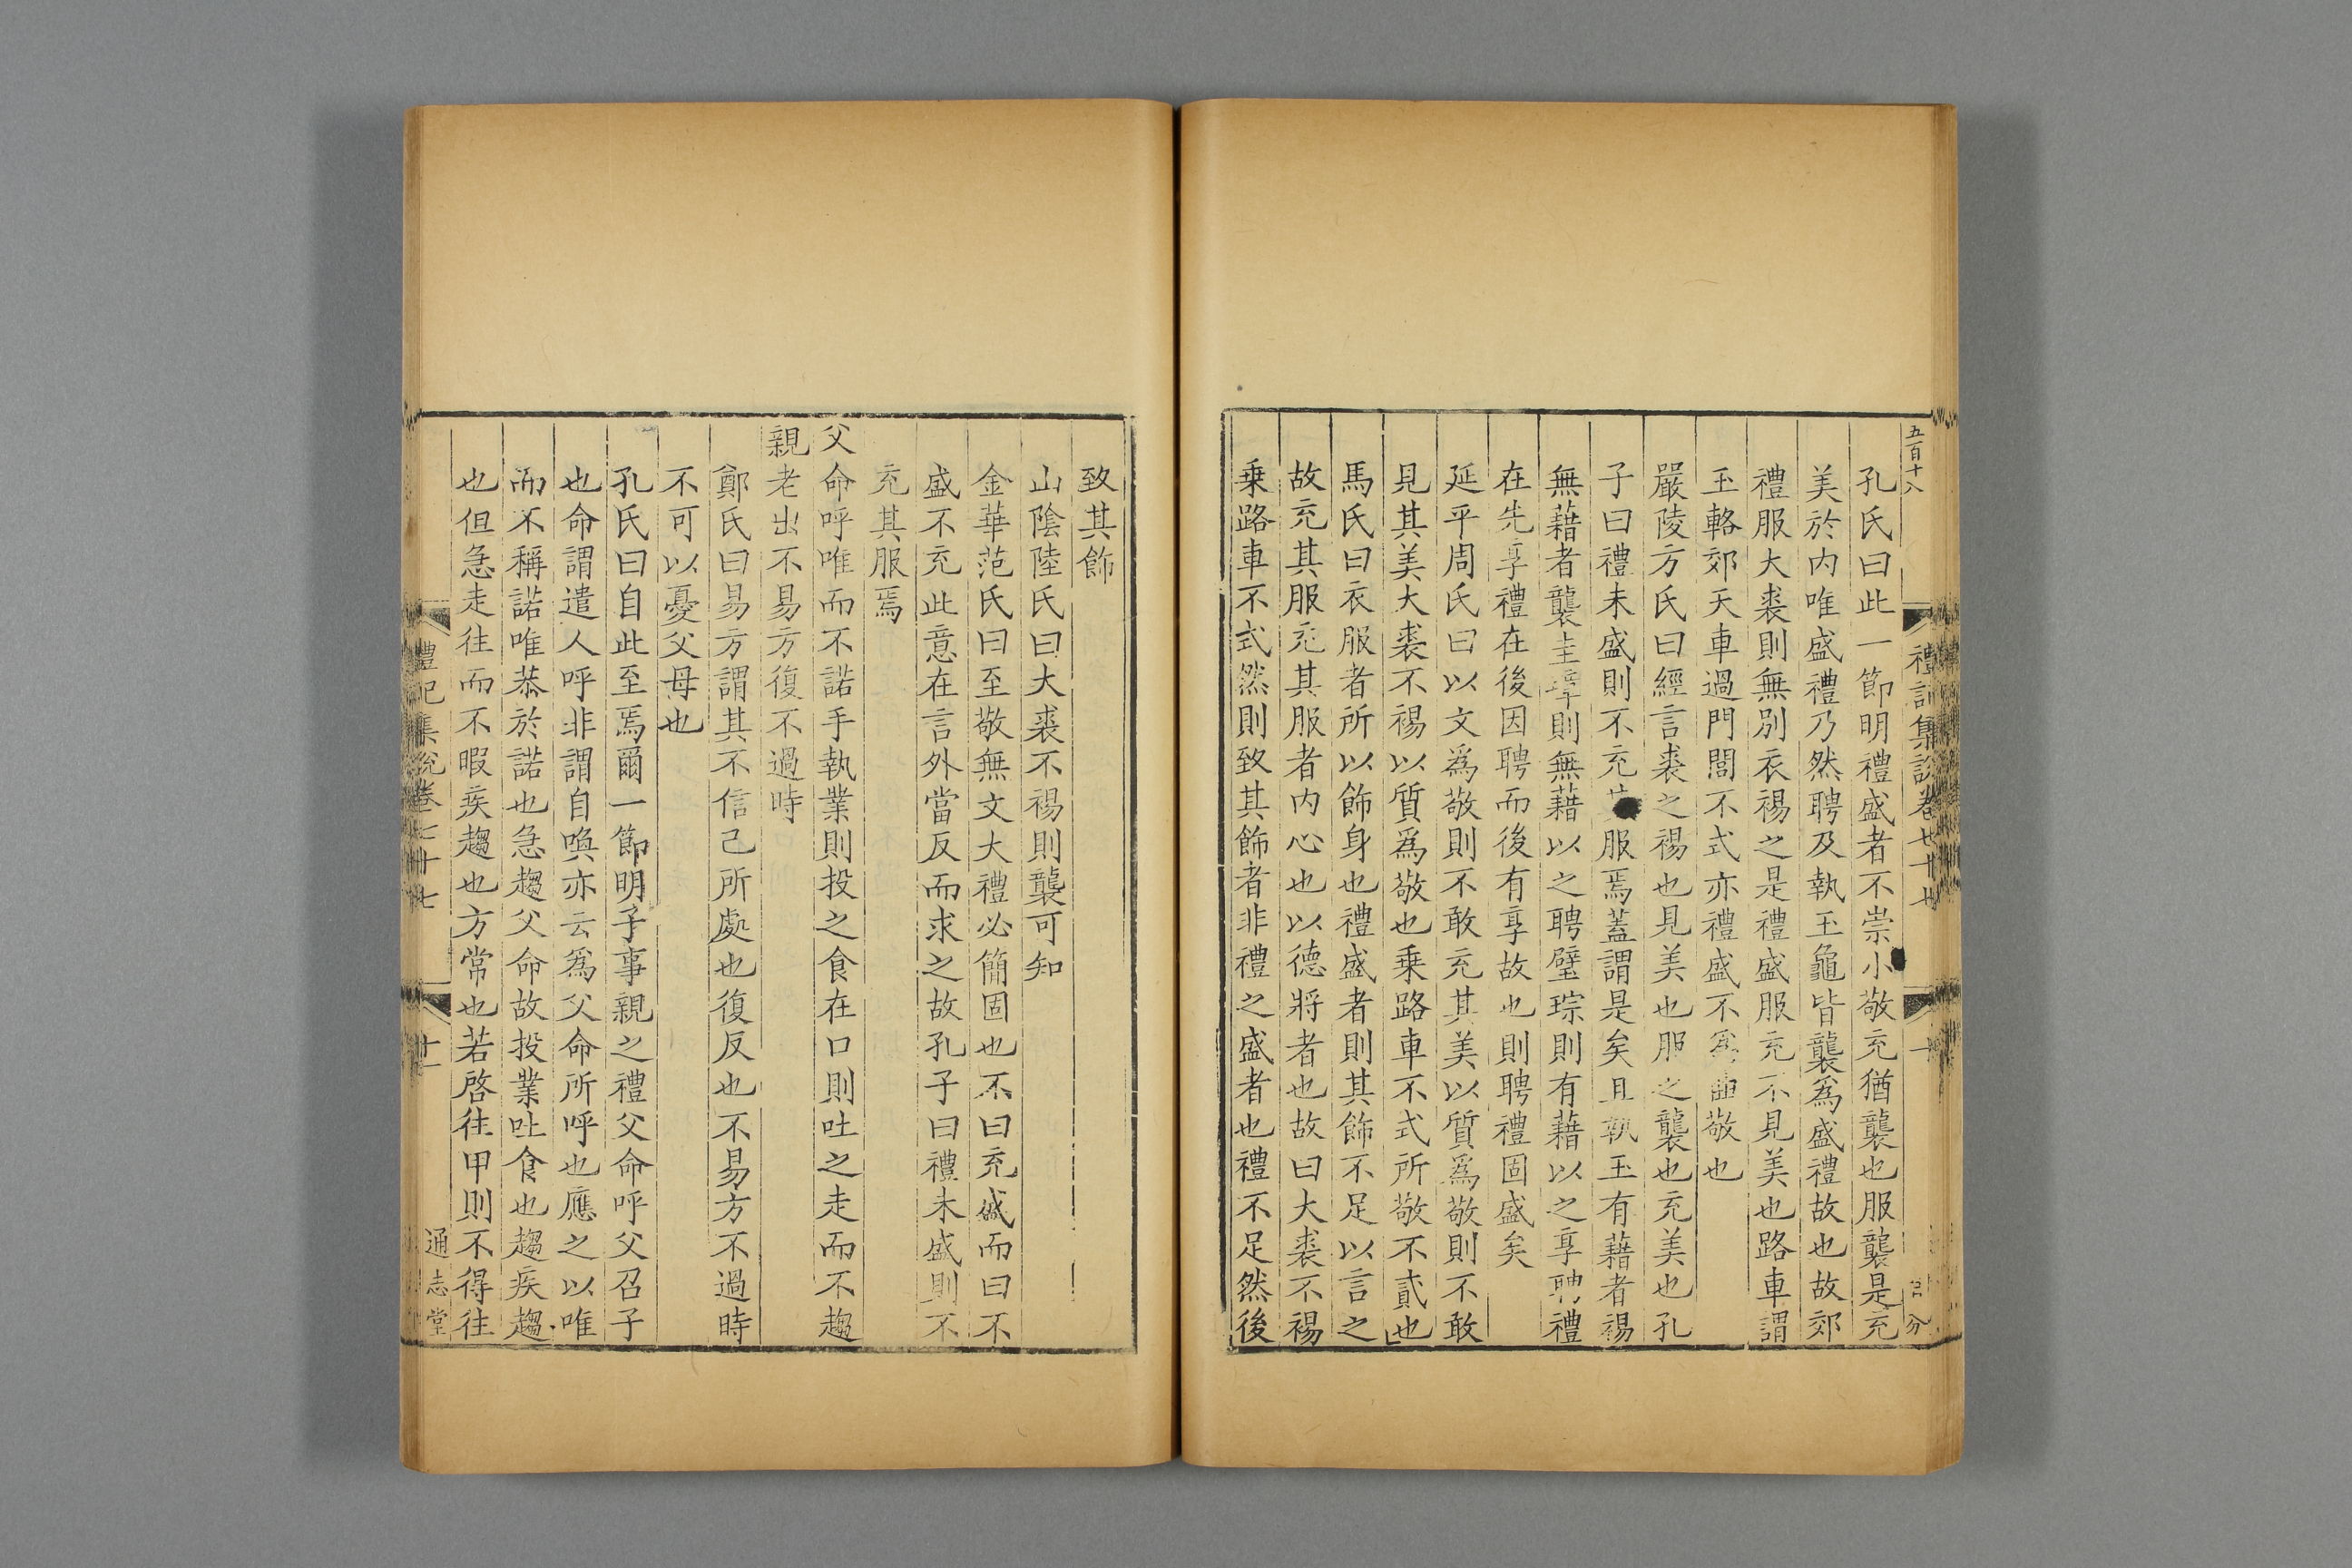 五百十八
孔氏曰此一節明禮盛者不崇小敬充猶襲也服襲是充
美於内唯盛禮乃然聘及執玉龜皆襲爲盛禮故也故郊
禮服大裘則無別衣裼之是禮盛服充不見美也路車謂
玉輅郊天車過門閭不式亦禮盛不爲曲敬也
嚴陵方氏曰經言裘之裼也見美也服之襲也充美也孔
子曰禮未盛則不充服焉蓋謂是矣且執玉有藉者裼
無藉者襲圭璋則無藉以之聘璧琮則有藉以之享聘禮
在先享禮在後因聘而後有享故也則聘禮固盛矣
延平周氏曰以文爲敬則不敢充其美以質爲敬則不敢
見其美大裘不裼以質爲敬也乗路車不式所敬不貳也
馬氏曰衣服者所以飾身也禮盛者則其飾不足以言之
故充其服充其服者内心也以德將者也故曰大裘不裼
乗路車不式然則致其飾者非禮之盛者也禮不足然後
致其飾
山陰陸氏曰大裘不裼則襲可知
金華范氏曰至敬無文大禮必簡固也不曰充盛而曰不
盛不充此意在言外當反而求之故孔子曰禮未盛則不
充其服焉
父命呼唯而不諾手執業則投之食在口則吐之走而不趨
親老出不易方復不過時
鄭氏曰易方謂其不信己所處也復反也不易方不過時
不可以憂父母也
孔氏曰自此至焉爾一節明子事親之禮父命呼父召子
也命謂遣人呼非謂自喚亦云爲父命所呼也應之以唯
而不稱諾唯恭於諾也急趨父命故投業吐食也趨疾趨
也但急走往而不暇疾趨也方常也若啓往甲則不得往
禮記集說卷七十七
十一
通志堂